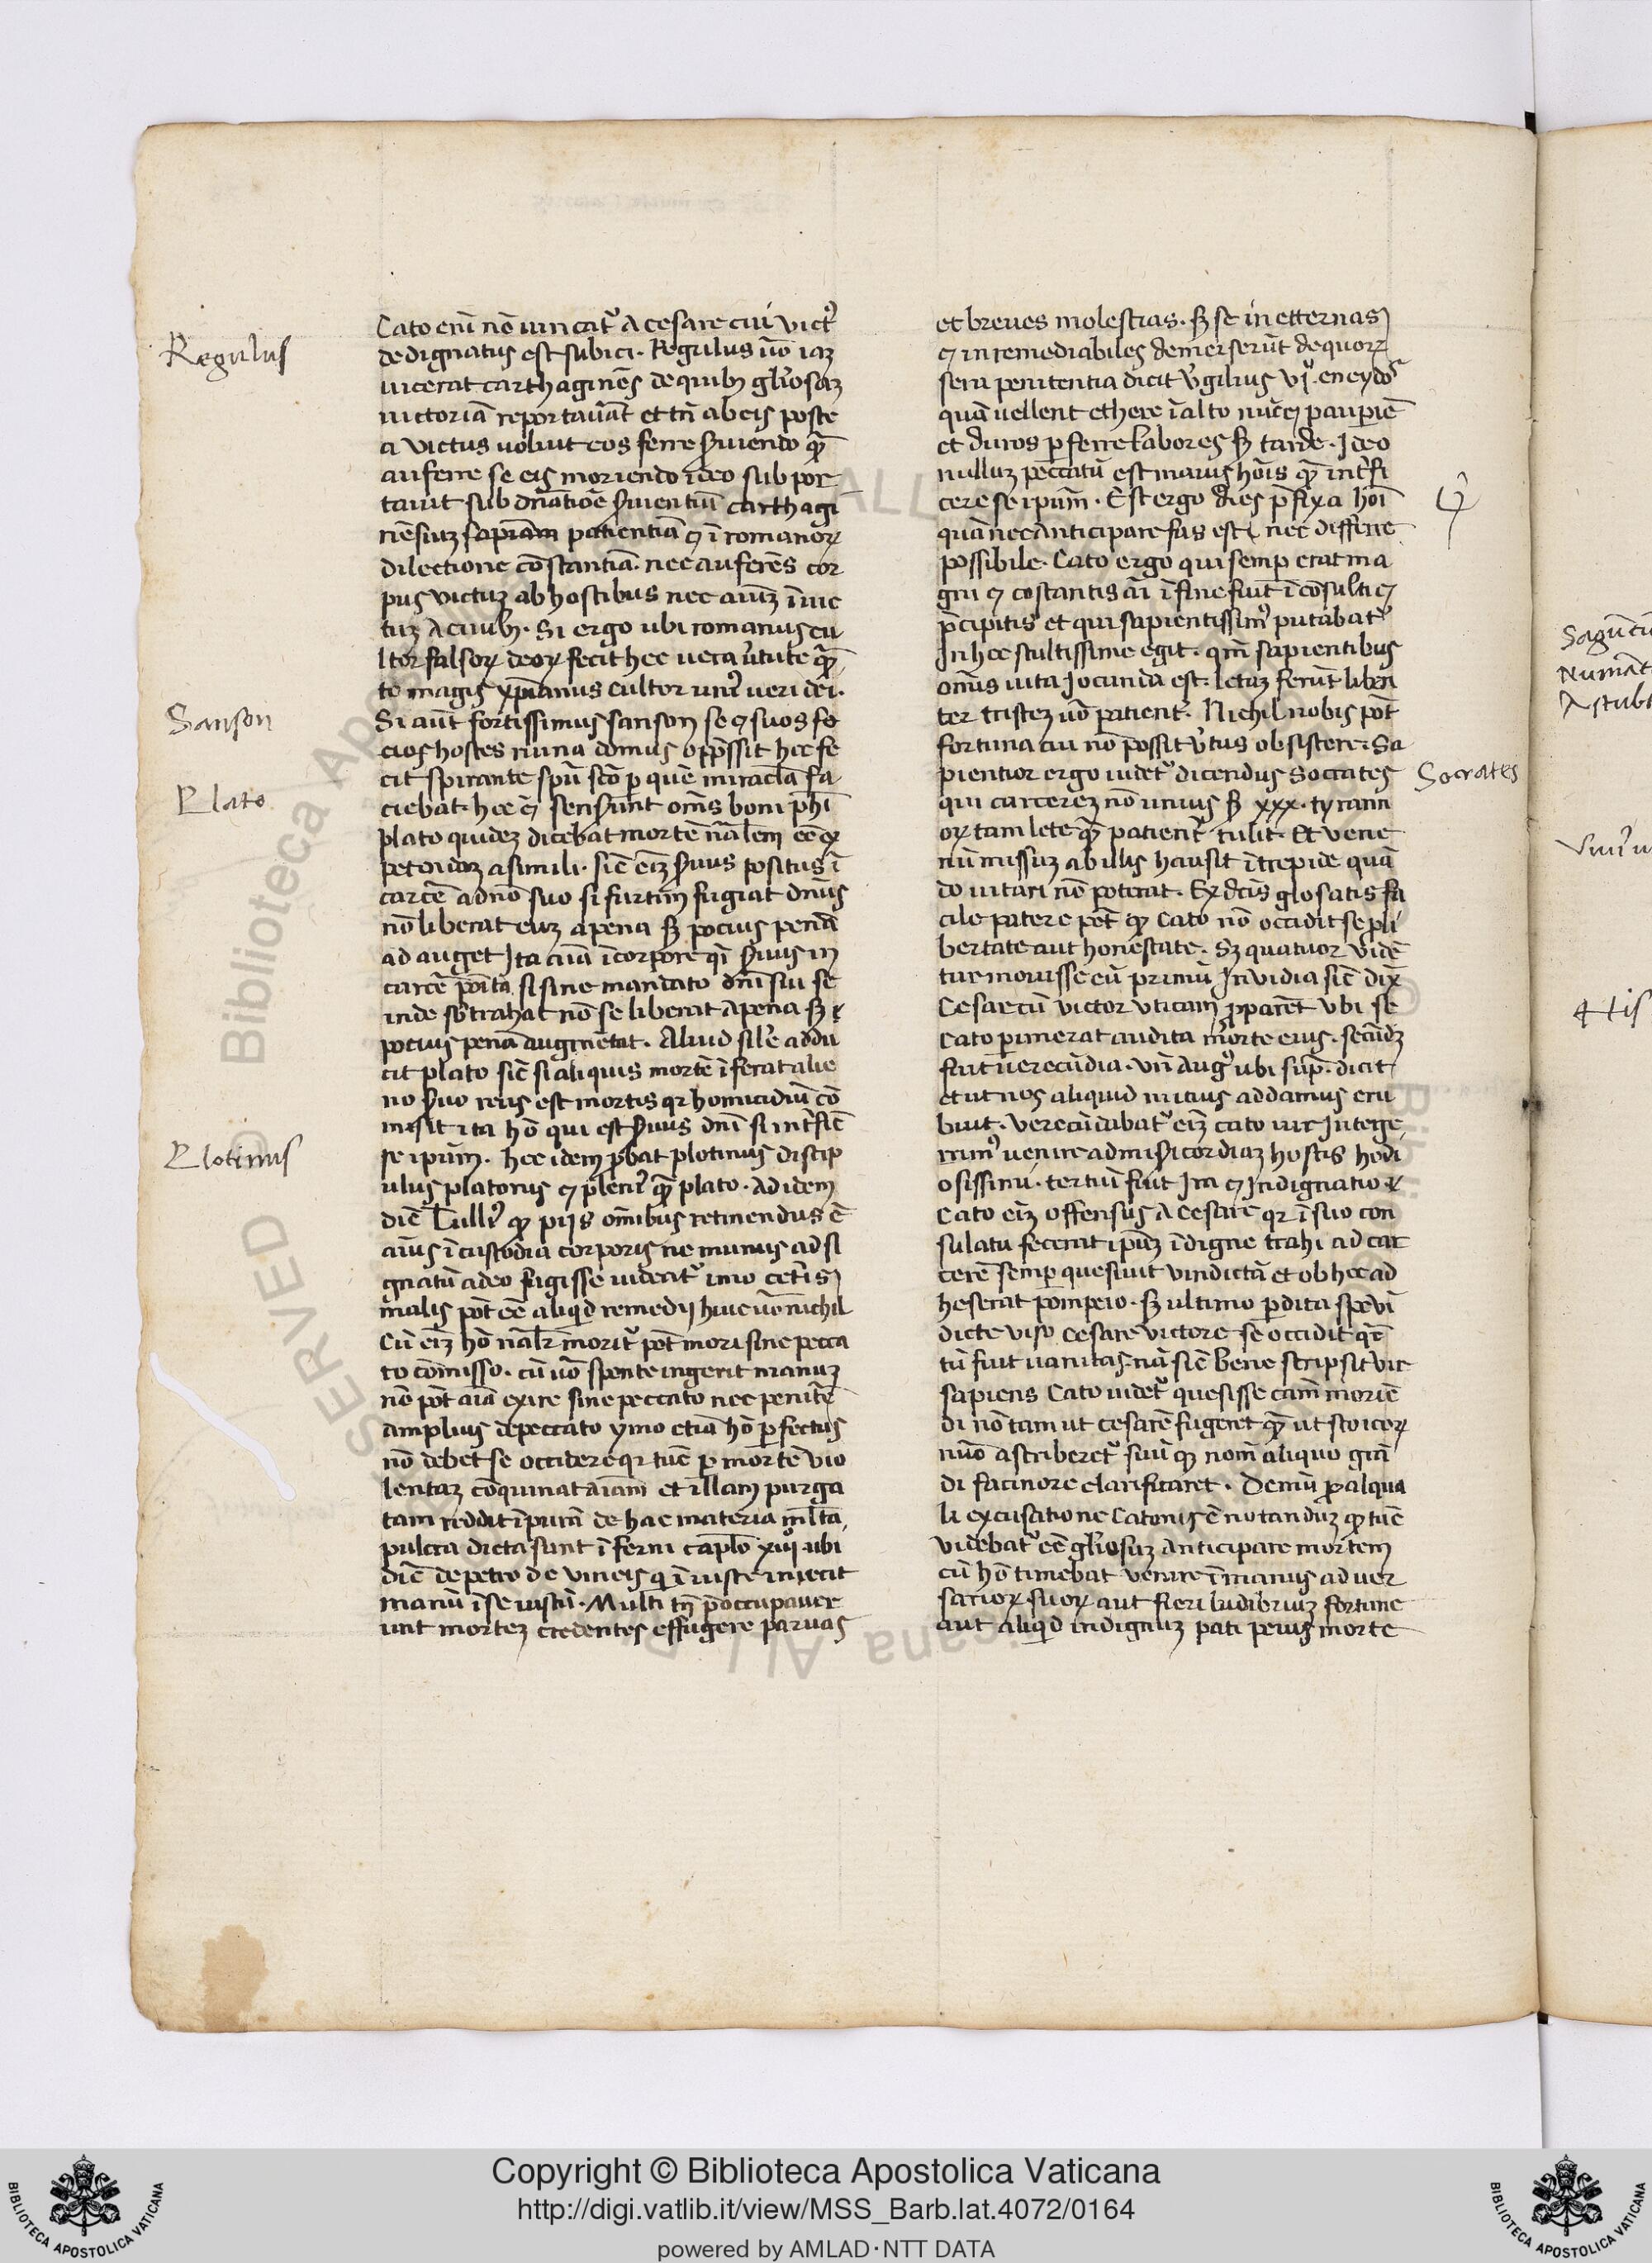 Regulus
Sanson
Plato
Plotinus
Cato eni nō vincatr a cesare cui vict9
dedignatus est subici. Regulus uo iaz
uicerat carthaginēs de quibus gliosaz
uictoriā reportauāt et tn̄ ab eis poste
a victus uoluit eos ferre suiendo qm̄
auferre se eis moriendo ideo subpor
tauit sub dn̄atiōe suientiū carthagi
nēsiuz patientiā et ī romanorum
dilectione cōstantiā. nec auferēs cor
pus victuz ab hostibus nec aīuz īuic
tuz a ciuibus. Si ergo ubi romanus cu
ltor falsorum deorum fecit hec uera uirtute quā
to magis xp̄ianus cultor uni9 ueri dei.
Si aūt fortissimus sanson se et suos so
cios hostes ruina domus oppressit hec fe
cit spirante spū sc̄o per quē miracl̄a fa
ciebat. hec et senserunt om̄s boni ph̄i
plato quidez dicebat mortē n̄alem eē ex
petendaz a simili. sic eīz seruus positus ī
carcē a dn̄o suo si furtim fugiat dn̄us
nō liberat euz a pena sed pocius penā
ad auget Ita aīa ī corpore quasi seruus in
carcē posita si sine mandato dn̄i sui se
inde subtrahat nō se liberat a pena sed
pocius penā augmētat. Aliud sile addu
cit plato sic si aliquis mortē īferat alie
no seruo reus est mortis quia homicidiū cō
misit ita hō qui est seruus dn̄i si interficit
se ipūm. hec idem probat plotinus discip
ulus platonis et pleni9 quā plato. Ad idem
dic Tulli9 quod piis omnibus retinendus ē
aīus ī custodia corporis ne munus adsi
gnatū a deo fugisse uideatur imo ceteris
malis pōt eē aliquid remedij huic uō nichil
Cū eīz hō nāl̄r moritur pōt mori sine pecca
to cōmisso. cū uō sponte ingerit manuz
nō pōt aīa exire sine peccato nec penitere
amplius de peccato ymo etiā hō perfectus
nō debet se occidere quia tūc per mortē vio
lentaz coīnquinat aīam et illam purga
tam reddit īpurā de hac materia ml̄ta
pulcra dicta sunt īferni caplo xiij ubi
dic̄ de petro de vineis qui īiuste iniecit
manū ī se iustū. Multi tn̄ preoccupauer
unt mortez credentes effugere paruas
et breues molestias. sed se in etternas
et inremediabiles demerserūt de quorum
sera penitentia dicit Virgilius vjo eneydos
quā uellent ethere ī alto nūc et pauperiē
et duros perferre labores sed tarde. Ideo
nulluz peccatū est maius hōis quā interfi
cere se ipūm. Est ergo dies prefixa hōi
quā nec anticipare fas est nec differre
possibile. Cato ergo qui semper erat ma
gni et costantis aī ī fine fuit īconsulti et
precipitis et qui sapientissim9 putabatur
In hec stultissime egit. qm̄ sapientibus
om̄is uita jocunda est. letaz ferūt liben
ter tristez uō patienter. Nichil nobis pōt
fortuna cui nō possit uirtus obsistere. Sa
pientior ergo uidetur dicendus Socrates
qui carcerez nō unius sed xxx. tyrann
orum tam lete quā patienter tulit. Et uene
nū missuz ab illis hausit ītrepide quā
do uitari nō poterat. Ex dictis glosatis fa
cile patere pōt quod Cato nō occidit se pro li
bertate aut honestate. Sz quatuor vidē
tur mouisse eū primū Inuidia sic dix
Cesar cū victor uticam properaret vbi se
Cato perimerat audita morte eius. secundum
fuit uerecūdia. vn̄ Aug9 ubi supra. dicit
et ut nos aliquid mitius addamus eru
buit. Verecūdabatur eīz cato uir Intege
rrim9 uenire ad misericordiaz hostis hodi
osissimi. tertiū fuit Ira et Indignatio
Cato eīz offensus a Cesare quia ī suo con
sulatu fecerat ipūz īdigne trahi ad car
cerē semper quesiuit vindictā et ob hec ad
heserat pompeio. sed ultimo perdita spe vī
dicte viso cesare victore se occidit quar
tū fuit uanitas. nā sic bene scripsit vir
sapiens Cato uidetur quesisse cām moriē
di nō tam ut cesarē fugeret quā ut stoicorum
nūo ascriberetur suūque nom̄ aliquo grā
di facinore clarificaret. Demū pro aliqua
li excusatione Catonis ē notanduz quod tūc
videbatur eē gliosuz anticipare mortem
cū hō timebat venire ī manus aduer
sariorum suorum aut fieri ludibriuz fortune
aut aliquid indignuz pati peius morte
Socrates
Saguntū
Numāt
Astub
His
Copyright © Biblioteca Apostolica Vaticana
http://digi.vatlib.it/view/MSS_Barb.lat.4072/0164
powered by AMLAD·NTT DATA
BIBLIOTECA APOSTOLICA VATICANA
BIBLIOTECA APOSTOLICA VATICANA